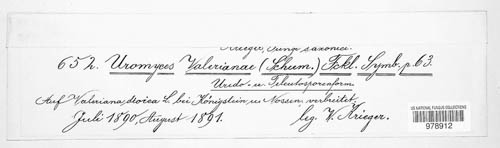 Krieger, Fungi saxonici.
652. Uromyces Valerianae (Schum.) Fckl. Symb. p. 63.
Uredo- u. Teleutosporenform.
Auf Valeriana dioica L. bei Königstein u. Nossen verbreitet,
Juli 1890, August 1891. leg. W. Krieger.
US NATIONAL FUNGUS COLLECTIONS
978912